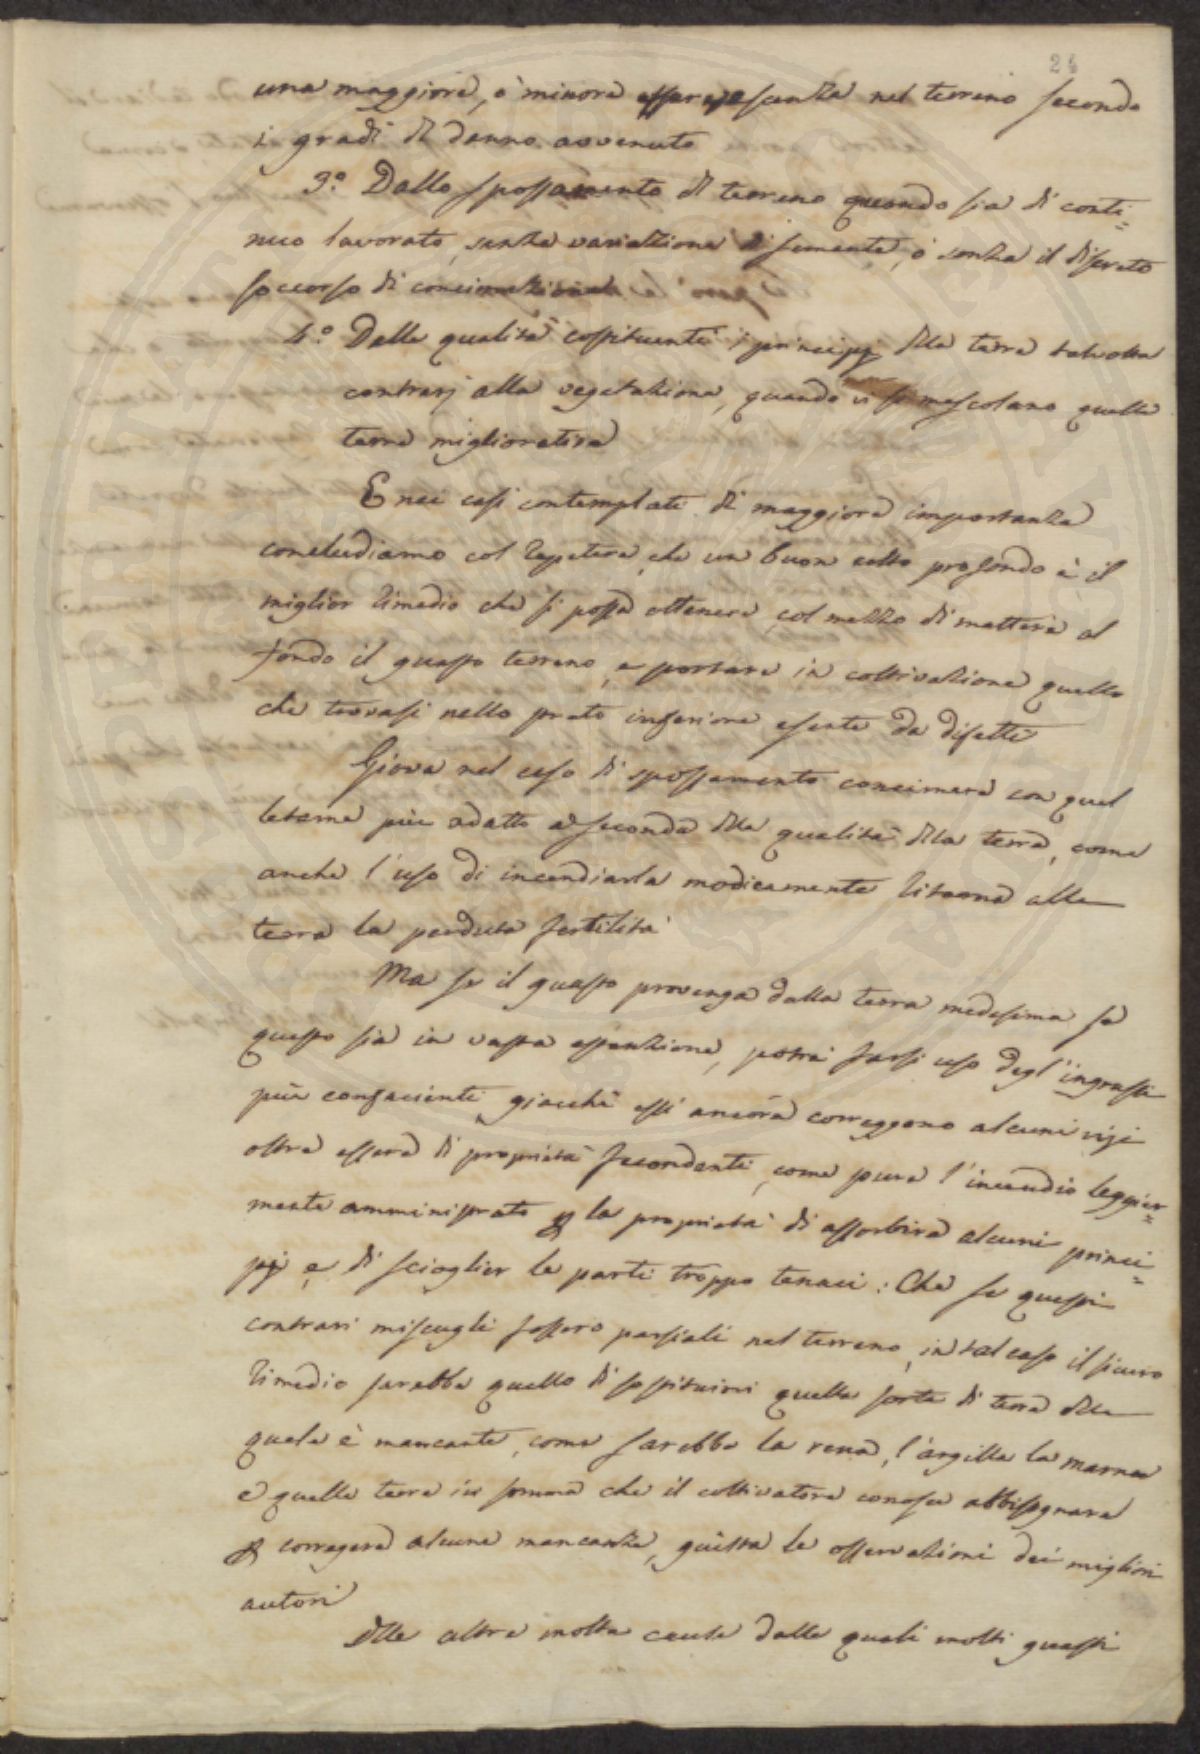 24
una maggiore, o minore efferescenza nel terreno secondo
i gradi di danno avvenuto
3.° Dallo spossamento di terreno quando sia di conti=
nuo lavorato, senza variazione di semente, o senza il discreto
soccorso di concimazione
4.° Dalle qualità costituenti i principj della terra talvolta
contrarj alla vegetazione, quando vi si mescolano quelle
terre migliorative
E nei casi contemplati di maggiore importanza
concludiamo col repetere che un buon colto profondo è il
miglior rimedio che si possa ottenere, col mezzo di mettere al
fondo il guasto terreno, e portare in coltivazione quello
che trovasi nello strato inferiore esente da difetti
Giova nel caso di spossamento concimare con quel
letame più adatto a seconda della qualità della terra, come
anche l'uso di incendiarla modicamente ritorna alla
terra la perduta fertilità
Ma se il guasto provenga dalla terra medesima se
questo sia in vasta estenzione, potrà farsi uso degl'ingrassi
più confacienti, giacchè essi ancora correggono alcuni vizi
oltre essere di proprietà fecondenti, come pure l'incendio leggier=
mente amministrato p la proprietà di assorbire alcuni princi=
pj e di scioglier le parti troppo tenaci: Che se questi
contrari miscugli fossero parziali nel terreno, in tal caso il sicuro
rimedio sarebbe quello di sostituirvi quella sorte di terra della
quale è mancante, come sarebbe la rena, l'argilla la marna
e quelle terre in somma che il coltivatore conosce abbisognare
p corregere alcune mancanze, guista le osservazioni dei migliori
autori
Alle altre molte cause dalle quali molti guasti